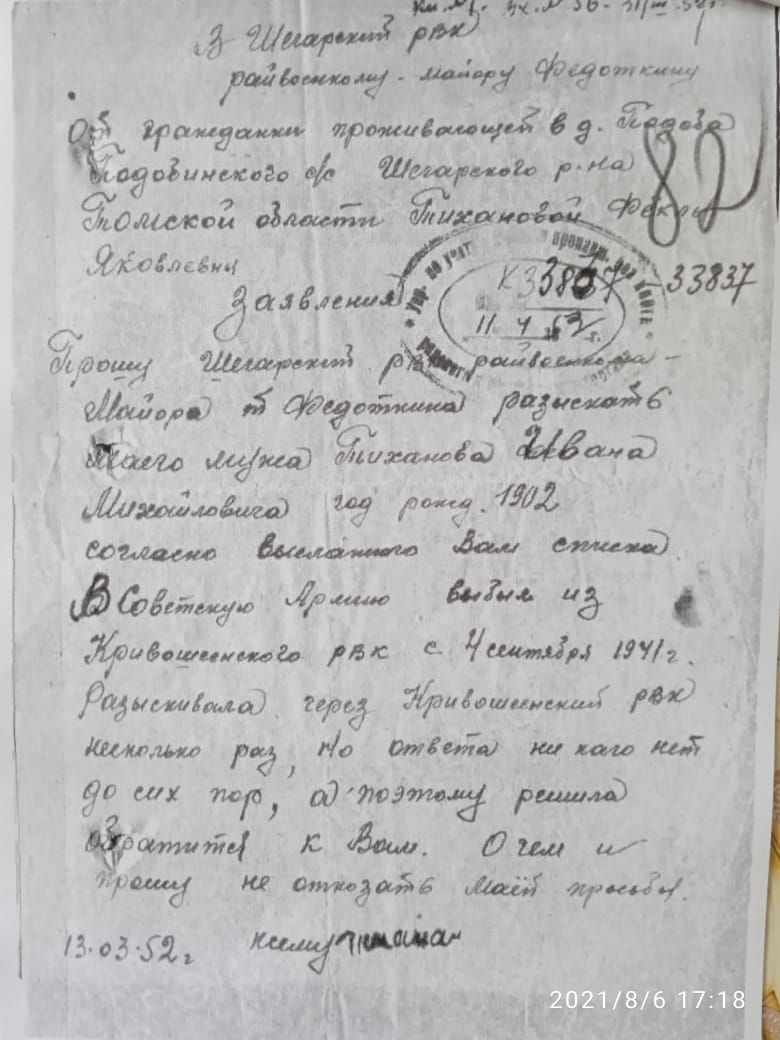 31/III-52г.
З Шегарский рвк
райвоенкому - майору Федоткину
От гражданки проживающей в д. Бадова
Бадовинского с/с Шегарского р-на
82
Томской области Тихановой Феклы
Яковлевны
33837
Заявления
11 4
Прошу Шегарский рвк райвоенкома -
Майора т Федоткина разыскать
Маего мужа Тиханова Ивана
Михайловича год рожд. 1902
согласно высланного Вам списка
В Советскую Армию выбыл из
Кривошеинского рвк с 4 сентября 1941 г.
Разыскивала через Кривошеинский рвк
несколько раз, но ответа ни каго нет
до сих пор, а поэтому решила
обратится к Вам. О чем и
прошу не отказать Маей просьбы.
13.03.52г
2021/8/6 17:18